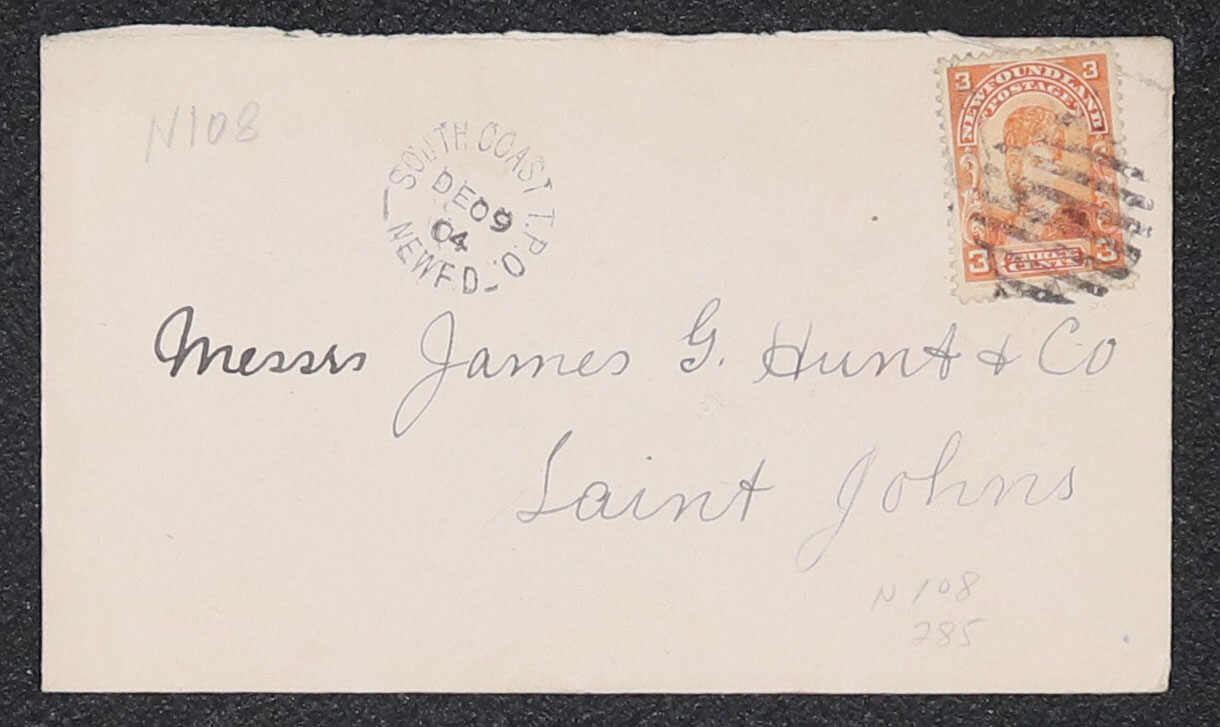 N108
SOUTH COAST T.P.O.
DE 09
04
NEWF'D
3 3
NEWFOUNDLAND
POSTAGE
3 THREE 3
CENTS
Messrs James G. Hunt & Co
Saint Johns
N 108
285